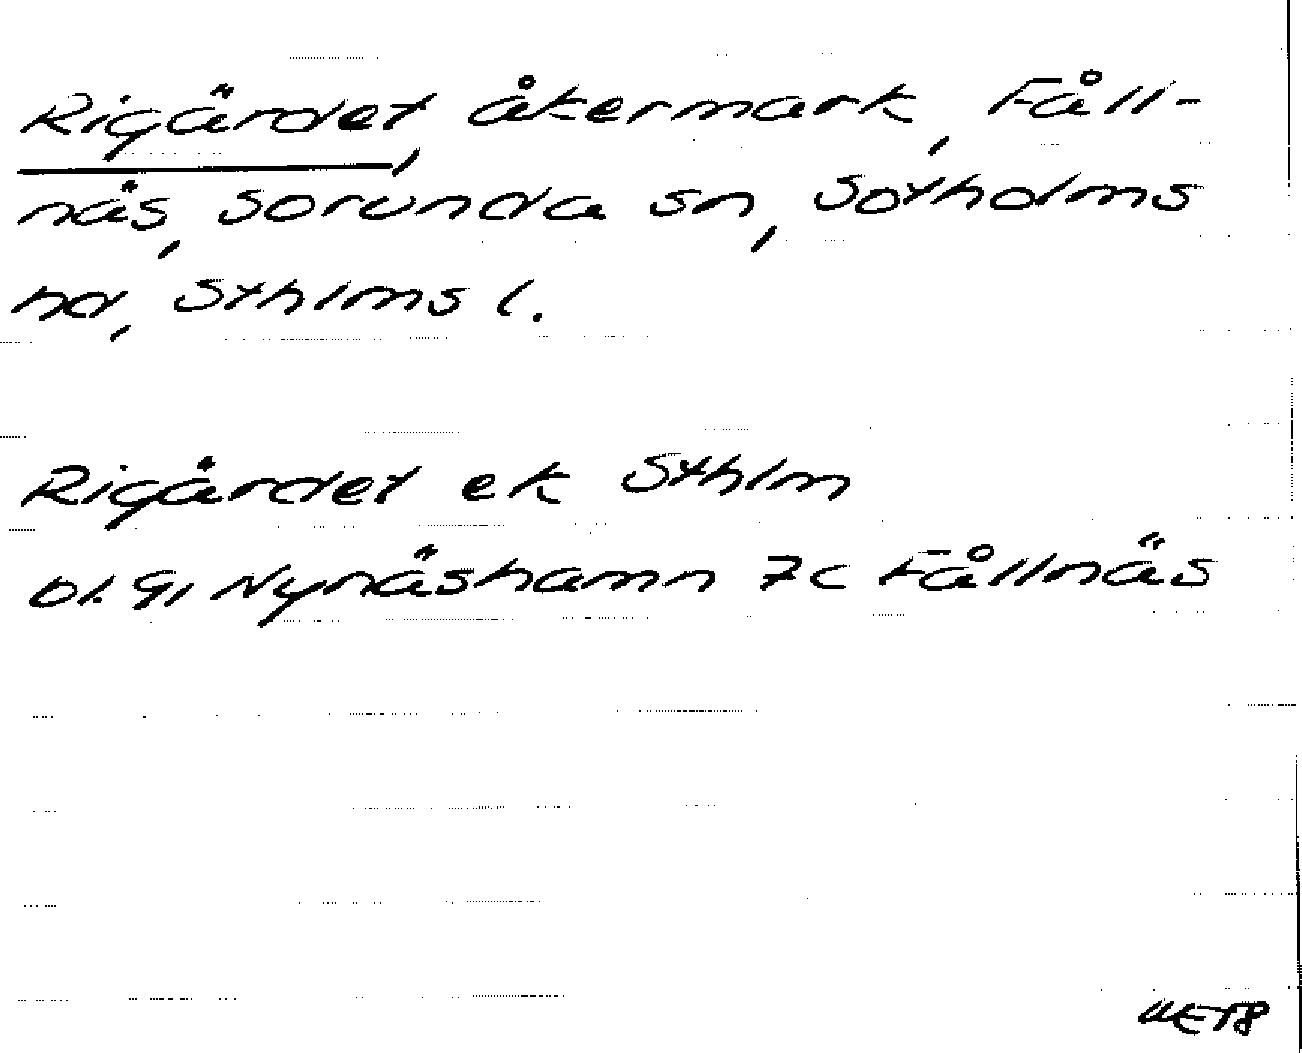 Rigärdet, åkermark, Fåll-
näs, Sorunda sn, Sotholms
hd, Sthlms l.
Rigärdet ek Sthlm
bl. 9i Nynäshamn 7c Fållnäs